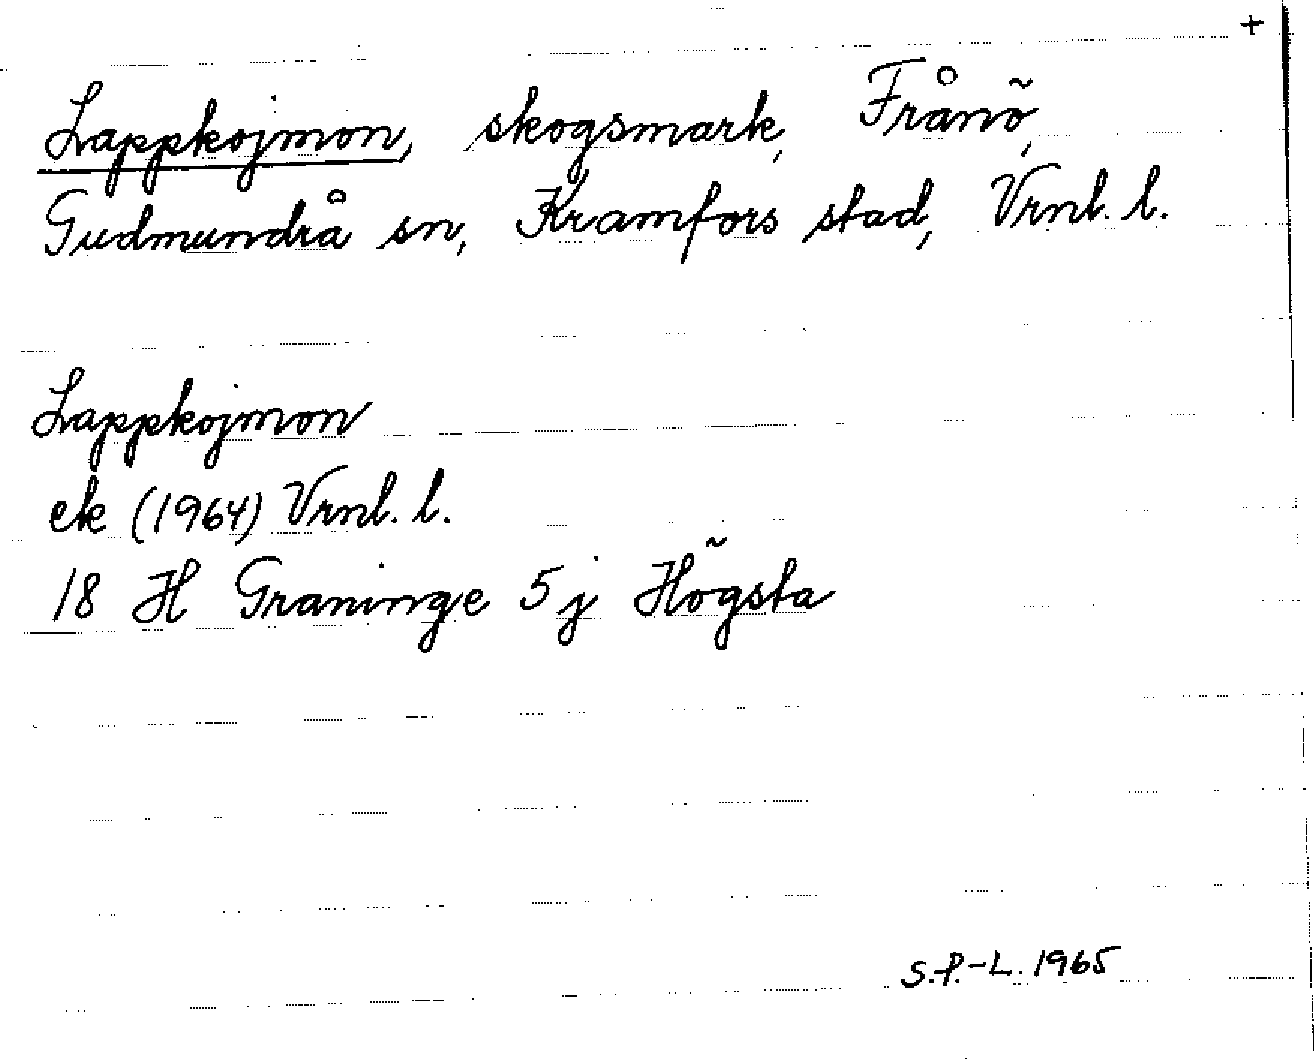 +
Lappkojmon, skogsmark, Frånö,
Gudmundrå sn, Kramfors stad, Vrnl. l.
Lappkojmon
ek (1964) Vrnl. l.
18 H Graninge 5 j Högsta
S.P.-L. 1965